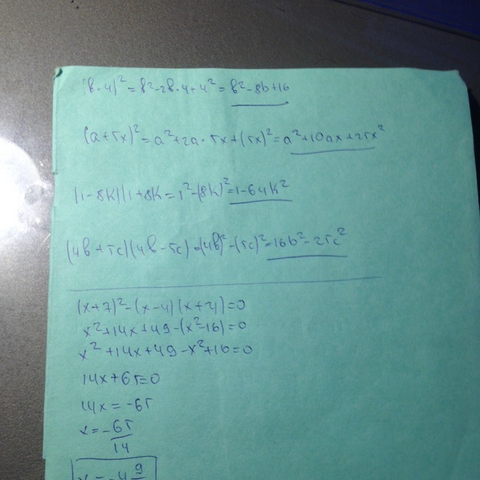 (b-4)² = b²-2b·4+4² = b²-8b+16
(a+5x)² = a²+2a·5x+(5x)² = a²+10ax+25x²
(1-8k)(1+8k = 1²-(8k)² = 1-64k²
(4b+5c)(4b-5c) = (4b)²-(5c)² = 16b²-25c²
(x+7)²-(x-4)(x+4)=0
x²+14x+49-(x²-16)=0
x²+14x+49-x²+16=0
14x+65=0
14x = -65
x = -65/14
x = -4 9